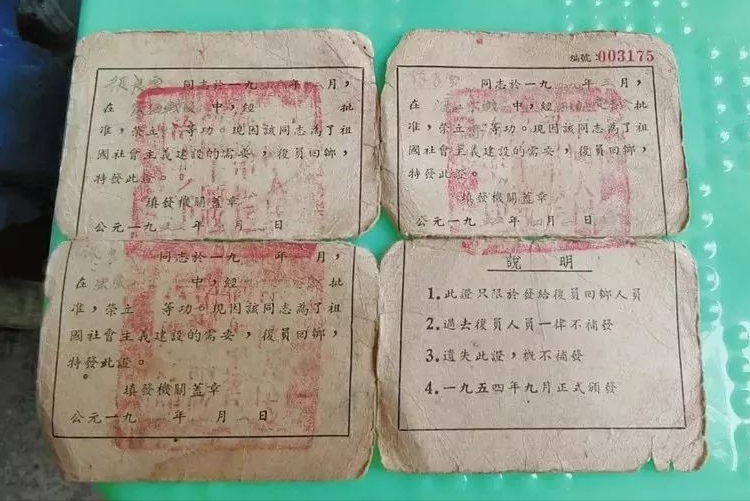 同志於一九　年　月，
在　中，經　批
准，榮立　等功。現因該同志為了祖
國社會主義建設的需要，復員回鄉，
特發此證。
填發機關蓋章
公元一九　年　月　日
編號：003175
同志於一九　年三月，
在　中，經　批
准，榮立　等功。現因該同志為了祖
國社會主義建設的需要，復員回鄉，
特發此證。
填發機關蓋章
公元一九　年　月　日
同志於一九　年　月，
在　中，經　批
准，榮立　等功。現因該同志為了祖
國社會主義建設的需要，復員回鄉，
特發此證。
填發機關蓋章
公元一九　年　月　日
說明
1.此證只限於發給復員回鄉人員
2.過去復員人員一律不補發
3.遺失此證，概不補發
4.一九五四年九月正式頒發